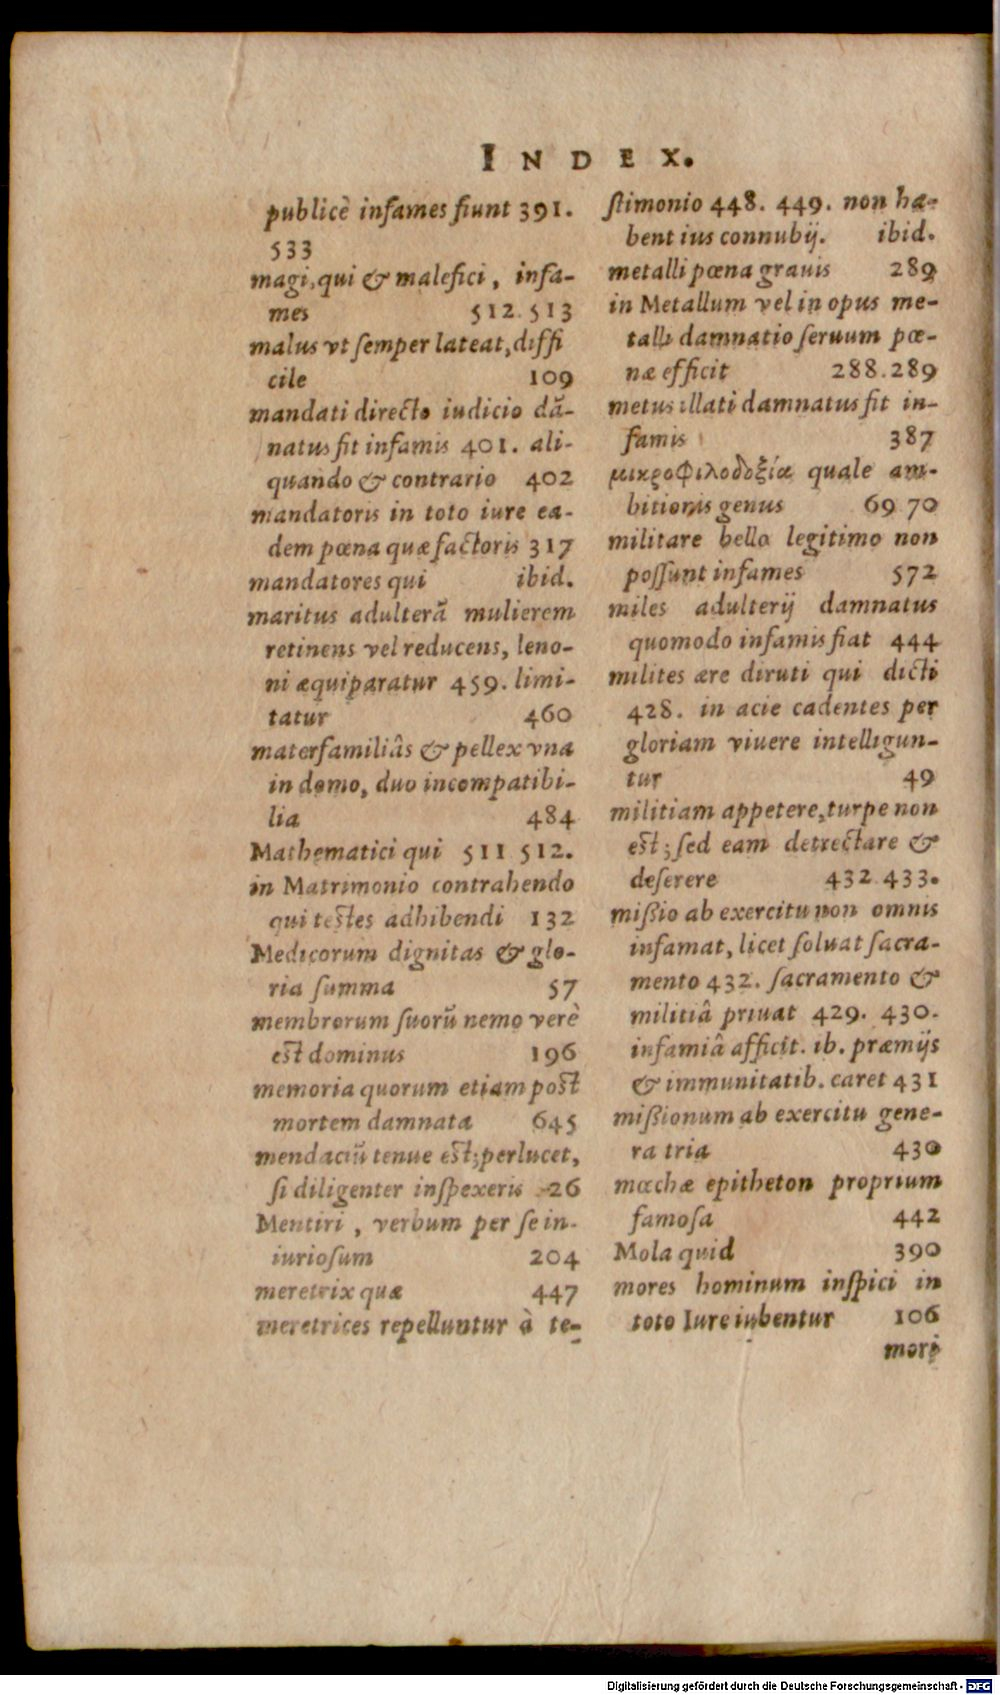 INDEX.
publicè infames fiunt 391.
533
magi, qui & malefici, infa-
mes 512. 513
malus vt ſemper lateat, diffi
cile 109
mandati directo iudicio dā-
natus fit infamis 401. ali-
quando & contrario 402
mandatoris in toto iure ea-
dem pœna quæ factoris 317
mandatores qui ibid.
maritus adulterā mulierem
retinens vel reducens, leno-
ni æquiparatur 459. limi-
tatur 460
materfamiliâs & pellex vna
in domo, duo incompatibi-
lia 484
Mathematici qui 511 512.
in Matrimonio contrahendo
qui testes adhibendi 132
Medicorum dignitas & glo-
ria ſumma 57
membrorum ſuorū nemo verè
est dominus 196
memoria quorum etiam post
mortem damnata 645
mendaciū tenue est; perlucet,
ſi diligenter inſpexeris 26
Mentiri, verbum per ſe in-
iurioſum 204
meretrix quæ 447
meretrices repelluntur à te-
ſtimonio 448. 449. non ha-
bent ius connubij. ibid.
metalli pœna grauis 289
in Metallum vel in opus me-
talli damnatio ſeruum pœ-
næ efficit 288.289
metus illati damnatus fit in-
famis 387
μικροφιλοδοξία quale am-
bitionis genus 69 70
militare bello legitimo non
poſſunt infames 572
miles adulterij damnatus
quomodo infamis fiat 444
milites ære diruti qui dicti
428. in acie cadentes per
gloriam viuere intelligun-
tur 49
militiam appetere, turpe non
est; ſed eam detrectare &
deſerere 432 433.
mißio ab exercitu non omnis
infamat, licet ſoluat ſacra-
mento 432. ſacramento &
militiâ priuat 429. 430.
infamiâ afficit. ib. præmijs
& immunitatib. caret 431
mißionum ab exercitu gene-
ra tria 430
mœchæ epitheton proprium
famoſa 442
Mola quid 390
mores hominum inſpici in
toto Iure iubentur 106
mori
Digitalisierung gefördert durch die Deutsche Forschungsgemeinschaft - DFG